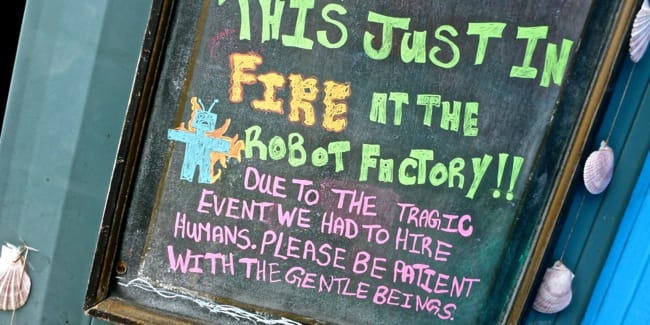 THIS JUST IN
FIRE AT THE
ROBOT FACTORY!!
DUE TO THE TRAGIC
EVENT WE HAD TO HIRE
HUMANS. PLEASE BE PATIENT
WITH THE GENTLE BEINGS.